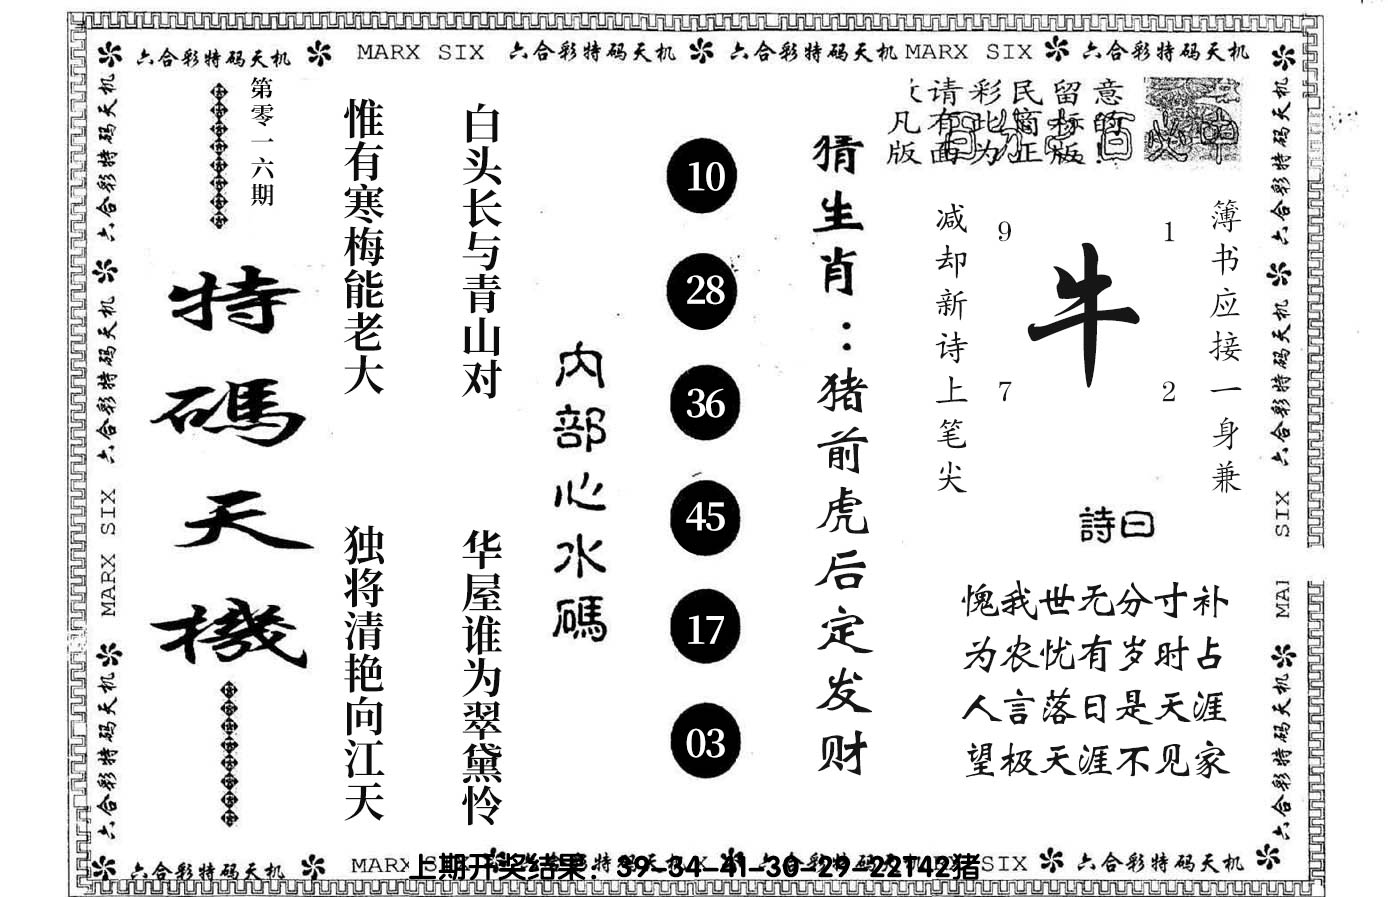 六合彩特码天机 MARX SIX 六合彩特码天机 六合彩特码天机 MARX SIX 六合彩特码天机
第零一六期
特碼天機
惟有寒梅能老大
独将清艳向江天
白头长与青山对
华屋谁为翠黛怜
内部心水碼
10
28
36
45
17
03
猜生肖：猪前虎后定发财
请彩民留意
凡有此窗标的
版面为正版!
簿书应接一身兼
减却新诗上笔尖
9
1
牛
7
2
詩曰
愧我世无分寸补
为农忧有岁时占
人言落日是天涯
望极天涯不见家
六合彩特码天机
六合彩特码天机
MARX SIX
六合彩特码天机
六合彩特码天机
六合彩特码天机
SIX
MA
六合彩特码天机
六合彩特码天机 MARX
SIX 六合彩特码天机
上期开奖结果：39-34-41-30-29-22T42猪